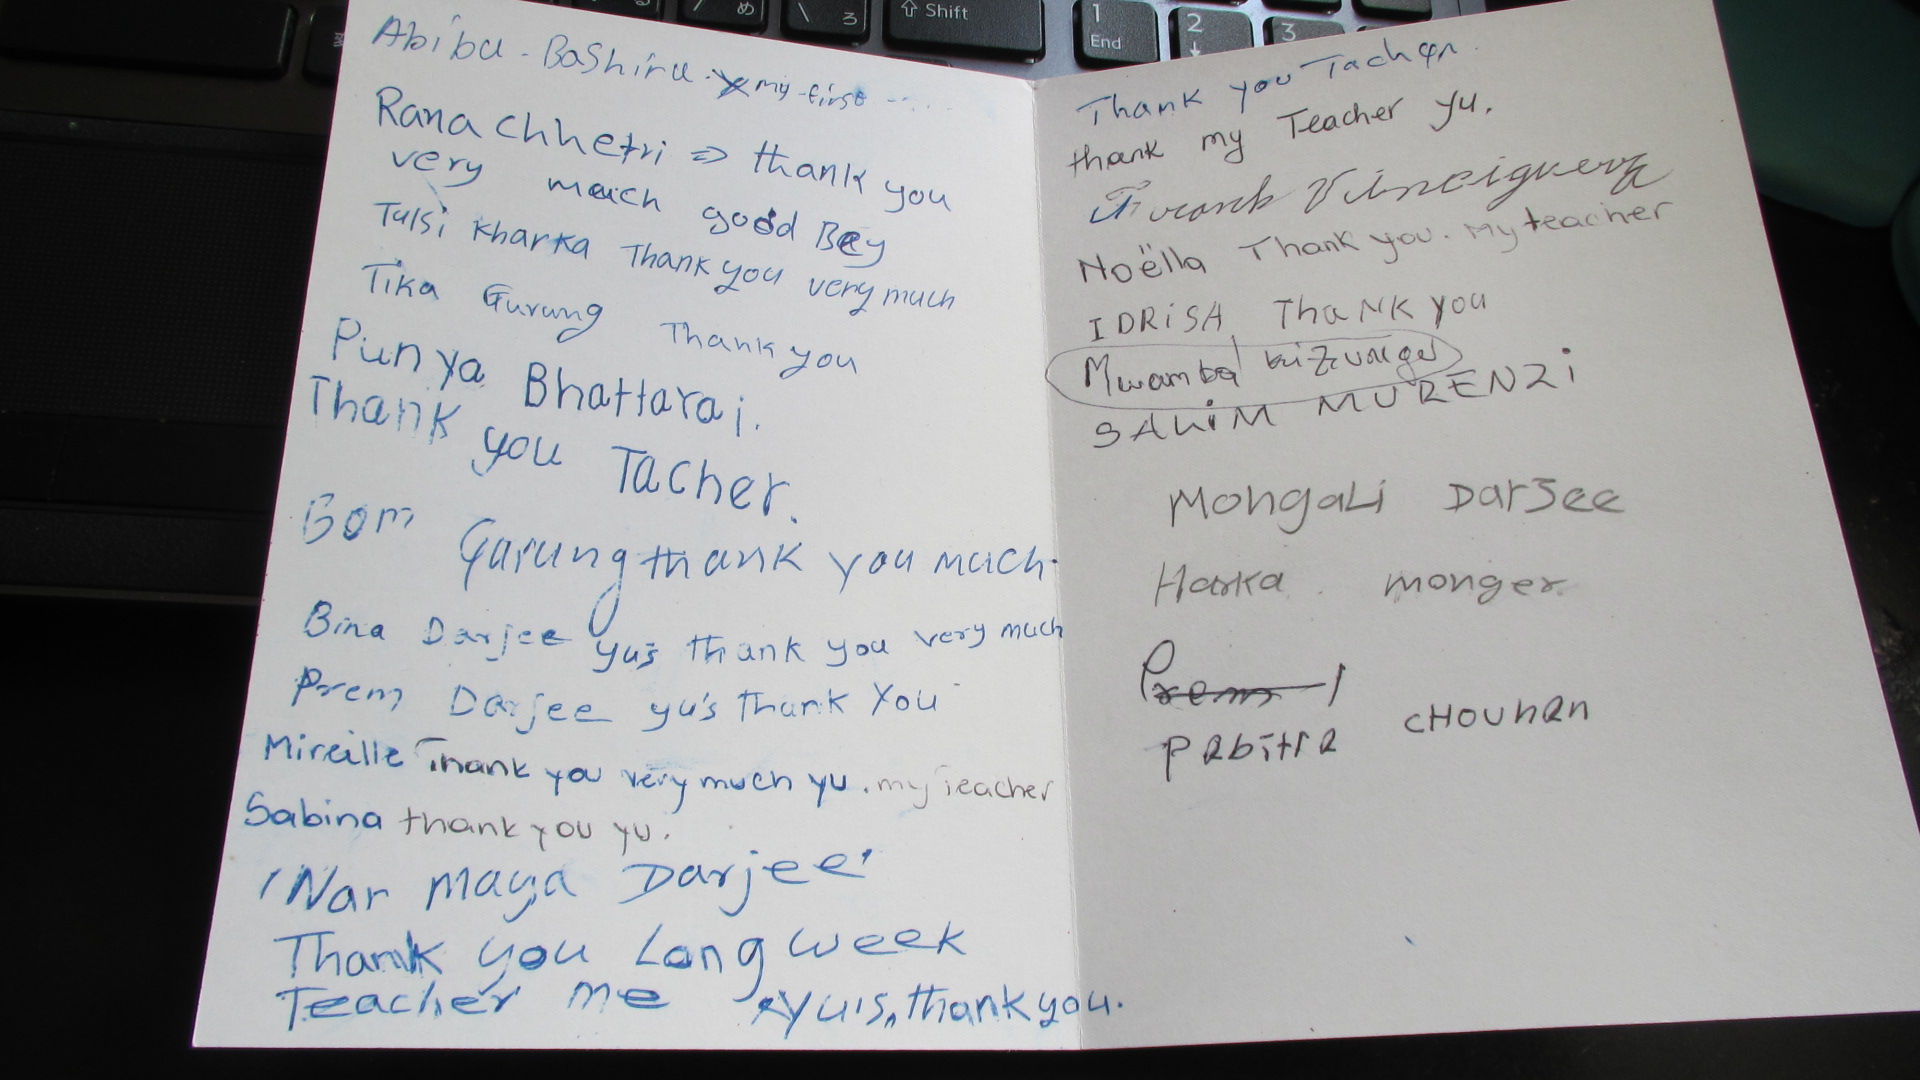 め
ろ
⇧ Shift
1
End
2
↓
3
Abibu - Bashiru my first
Rana Chhetri ⇒ thank you
very mach good Boy
Tulsi Kharka Thank you very much
Tika Gurung Thank you
Punya Bhattarai.
Thank you Tacher.
Bom Garung thank you much.
Bina Darjee yu's thank you very much
Prem Darjee yu's thank You
Mireille Thank you very much yu. my Teacher
Sabina thank you yu.
'Nar maya Darjee'
Thank you Long week
Teacher me yuis, thank you.
Thank you Tacher.
thank my Teacher yu.
Frank Vinciguerra
Noëlla Thank you. My teacher
IDRiSA ThaNK you
Mwamba
SALiM MURENZi
MongaLi Darjee
Harka monger
Prem
Pabitra CHOUHAN